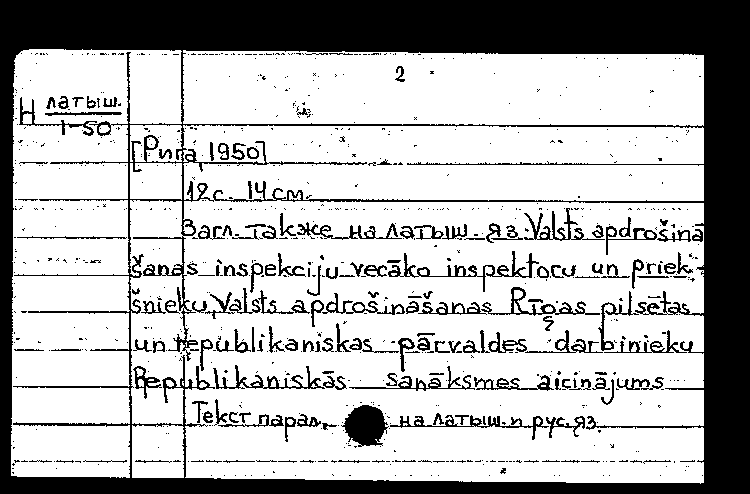 2
Н латыш.
1-50
[Рига, 1950]
12 с. 14 см.
Загл. также на латыш. яз. Valsts apdrošinā
šanas inspekciju vecāko inspektoru un priek-
šnieku, Valsts apdrošināšanas Rīgas pilsētas
un republikaniskas pārvaldes darbinieku
Republikaniskās sanāksmes aicinājums
Текст парал. на латыш. и рус. яз.